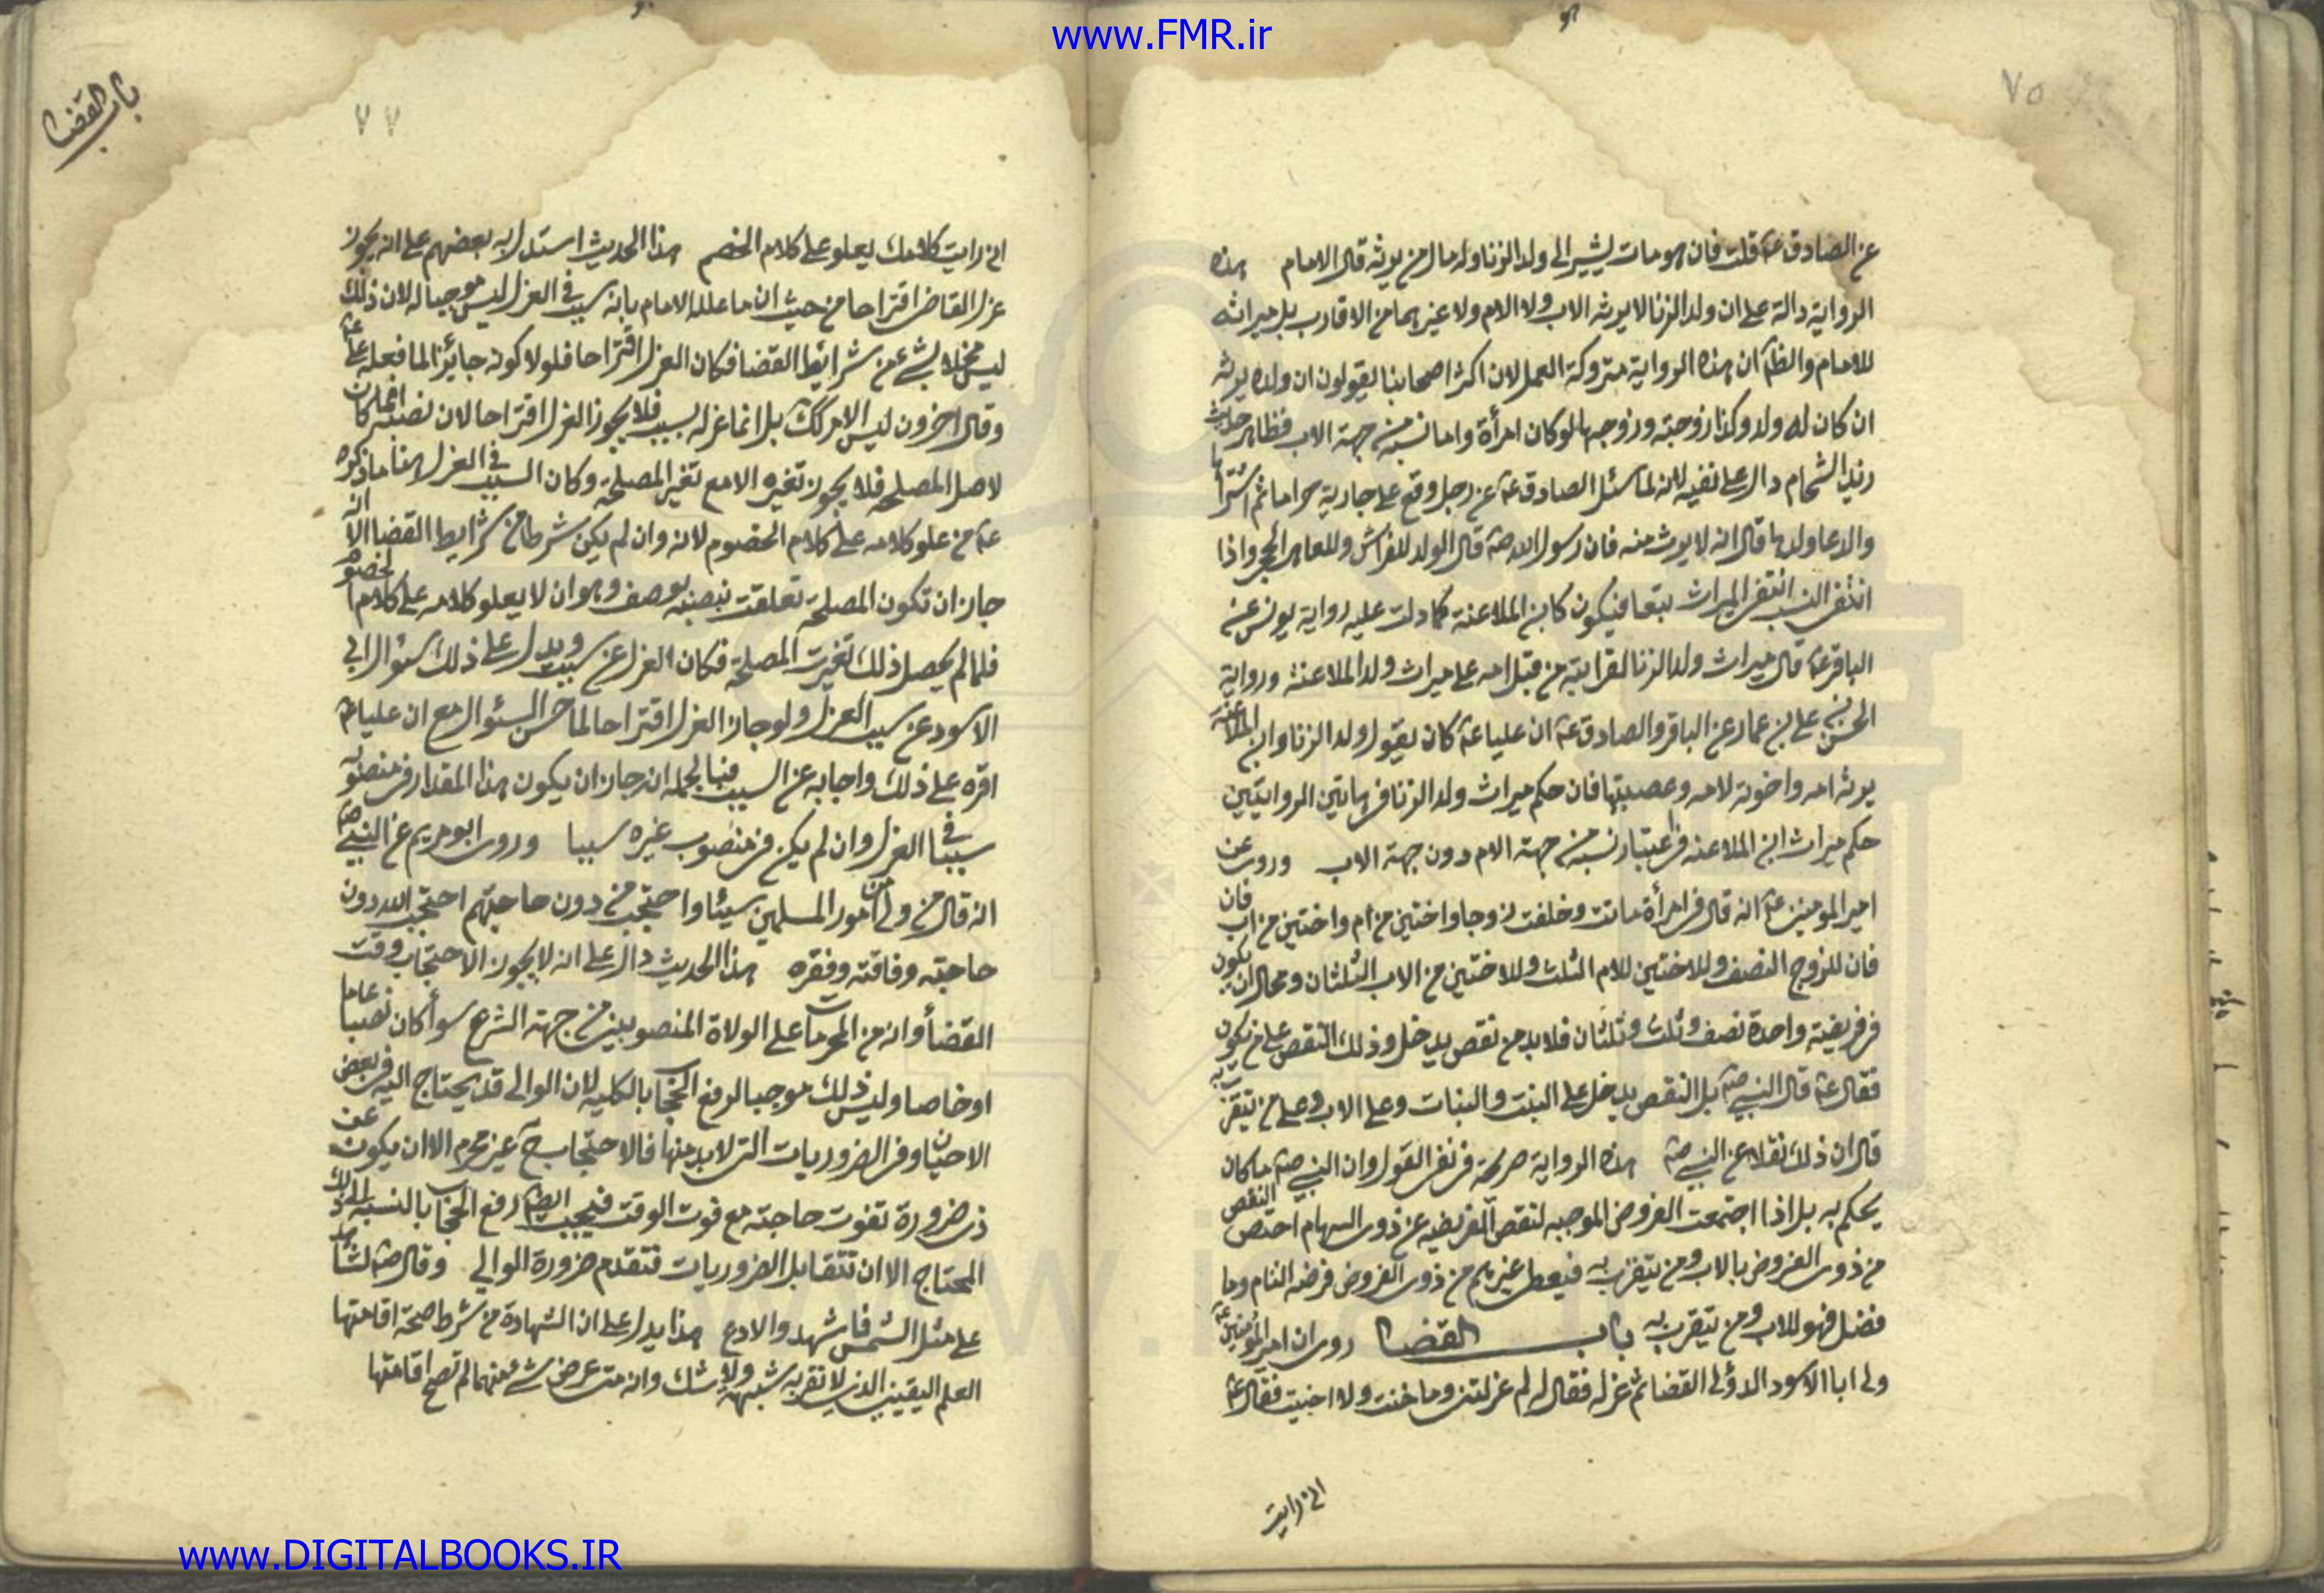 www.FMR.ir
٧٥
عن الصادق ع قلت فان هو مات يشير الى ولد الزنا وله مال من يرثه قال الامام هذه
الرواية دالة على ان ولد الزنا لا يرثه الاب ولا الام ولا غيرهما من الاقارب بل ميراثه
للامام والظ ان هذه الرواية متروكة العمل لان اكثر اصحابنا يقولون ان ولده يرثه
ان كان له ولد وكذا زوجته وزوجها لو كان امرأة واما نسبه من جهة الاب فظاهر حديث
زيد الشحام دال على نفيه لانه لما سئل الصادق ع عن رجل وقع على جارية حراما ثم اشترا ها
وادعا ولدها قال انه لا يورث منه فان رسول الله ص قال الولد للفراش وللعاهر الحجر واذا
انتفى النسب انتفى الميراث تبعا فيكون كابن الملاعنة كما دلت عليه رواية يونس عن
الباقر ع قال ميراث ولد الزنا لقرابته من قبل امه على ميراث ولد الملاعنة ورواية
الحسن بن على بن عمار عن الباقر والصادق ع ان عليا ع كان يقول ولد الزنا وابن الملاعنة
يرثه امه واخوته لامه وعصبتها فان حكم ميراث ولد الزنا في هاتين الروايتين
حكم ميراث ابن الملاعنه في اعتبار نسبه من جهة الام دون جهة الاب وروى عن
امير المومنين ع انه قال في امرأة ماتت وخلفت زوجا واختين من ام واختين من اب فان
فان للزوج النصف وللاختين للام الثلث وللاختين من الاب الثلثان ومحال ان يكون
في فريضة واحدة نصف وثلث وثلثان فلا بد من نقص يدخل وذلك النقص على من يكون
فقال ع قال النبي ص بل النقص يدخل على البنت والبنات وعلى الاب وعلى من يتقرب به
قال ان ذلك نقلا عن النبي ص هذه الرواية صريحة في نفي القول وان النبي ص ما كان
يحكم به بل اذا اجتمعت الفروض الموجبه لنقص الفريضه عن ذوى السهام اختص النقص
من ذوى الفروض بالاب ومن يتقرب به فيعطى غيرهم من ذوى الفروض فرضه التام وما
فضل فهو للاب ومن يتقرب به باب القضا روى ان امير المؤمنين ع
ولى ابا الاسود الدؤلى القضا ثم عزله فقال له لم عزلتنى وما خنت ولا اجنيت فقال ع
انى رايت
باب القضا
٧٧
انى رايت كلامك يعلو على كلام الخصم هذا الحديث استدل به بعضهم على انه يجوز
عزل القاضى اقتراحا من حيث ان ما علله الامام بانه سبب فى العزل ليس موجبا له لان ذلك
ليس مخلا بشئ عن شرائط القضا فكان العزل اقتراحا فلولا كونه جايزا لما فعله على ع
وقال اخرون ليس الامر كك بل انما عزله لسبب فلا يجوز العزل اقتراحا لان نصبه انما كان
لاصل المصلحه فلا يجوز تغيره الا مع تغير المصلحة وكان السبب فى العزل هنا ما ذكره
ع من علو كلامه على كلام الخصوم لانه وان لم يكن شرطا من شرايط القضا الا انه
جاز ان تكون المصلحة تعلقت بنصبه بوصف وهو ان لا يعلو كلامه على كلام الخصوم
فلما لم يحصل ذلك تغيرت المصلحة فكان العزل عن سبب ويدل على ذلك سئوال ابى
الاسود عن سبب العزل ولو جاز العزل اقتراحا لما حسن السئوال مع ان عليا ع
اقره على ذلك واجابه عن السبب فبالجمله انه جاز ان يكون هذا المقدار في منصوبه
سببا فى العزل وان لم يكن في منصوب غيره سببا وروى ابو مريم عن النبي ص
انه قال من ولى من امور المسلمين شيئا واحتجب من دون حاجتهم احتجب الله دون
حاجته وفاقته وفقره هذا الحديث دال على انه لا يجوز الاحتجاب وقت
القضأ وانه من المحرمات على الولاة المنصوبين من جهة الشرع سوأ كان نصبا عاما
او خاصا وليس ذلك موجبا لرفع الحجاب بالكليه لان الوالى قد يحتاج اليه فى بعض
الاحيان وفى الضروريات التى لابد منها فالاحتجاب ح غير محرم الا ان يكون عن
ذى ضرورة تفوت حاجته مع فوت الوقت فيجب رفع الحجاب بالنسبه الى ذلك
المحتاج الا ان تتقابل الضروريات فتقدم ضرورة الوالي وقال ص لشاهد
على مثل الشمس فاشهد والا دع هذا يدل على ان الشهادة من شرط صحة اقامتها
العلم اليقينى الذى لا تقربه شبهة ولا شك وانه متى عرض شئ منهما لم تصح اقامتها
www.DIGITALBOOKS.IR